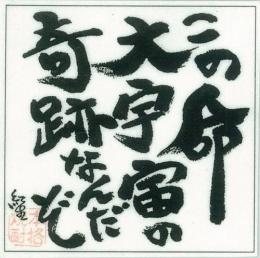 この命
大宇宙の
奇跡なんだ
ぞ